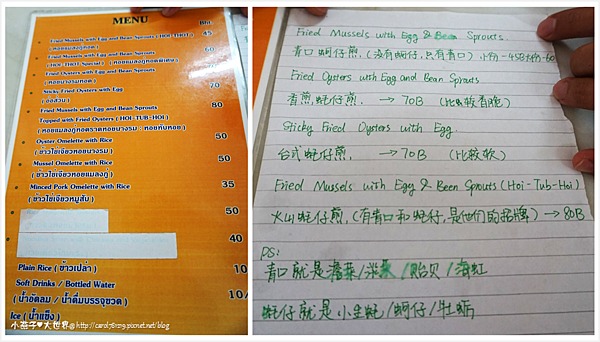 MENU
Bht.
Fried Mussels with Egg and Bean Sprouts (HOI-THOT) 45
(หอยแมลงภู่ทอด)
Fried Mussels with Egg and Bean Sprouts 50
(HOI-THOT Special) (หอยแมลงภู่ทอดพิเศษ)
Fried Oysters with Egg and Bean Sprouts 70
(หอยนางรมทอด)
Sticky Fried Oysters with Egg 70
(ออส่วน)
Fried Mussels with Egg and Bean Sprouts 80
Topped with Fried Oysters (HOI-TUB-HOI)
(หอยแมลงภู่ทอดราดหอยนางรม : หอยทับหอย)
Oyster Omelette with Rice 50
(ข้าวไข่เจียวหอยนางรม)
Mussel Omelette with Rice 50
(ข้าวไข่เจียวหอยแมลงภู่)
Minced Pork Omelette with Rice 35
(ข้าวไข่เจียวหมูสับ)
50
40
Plain Rice (ข้าวเปล่า) 10
Soft Drinks / Bottled Water 10/
(น้ำอัดลม / น้ำดื่มบรรจุขวด)
Ice (น้ำแข็ง)
小燕子♥大世界@http://carol781219.pixnet.net/blog
Fried Mussels with Egg & Bean Sprouts.
青口蚵仔煎,(没有蚵仔,只有青口) 小份-45B 大份-60
Fried Oysters with Egg and Bean Sprouts
香煎蚝仔煎, → 70B (比较香脆)
Sticky Fried Oysters with Egg
台式蚝仔煎, → 70B (比较软)
Fried Mussels with Egg & Been Sprouts (Hoi-Tub-Hoi)
火山蚝仔煎,(有青口和蚝仔,是他们的招牌) → 80B
PS:
青口就是 /淡菜/贻贝/海虹
蚝仔就是小生蚝/蚵仔/牡蛎